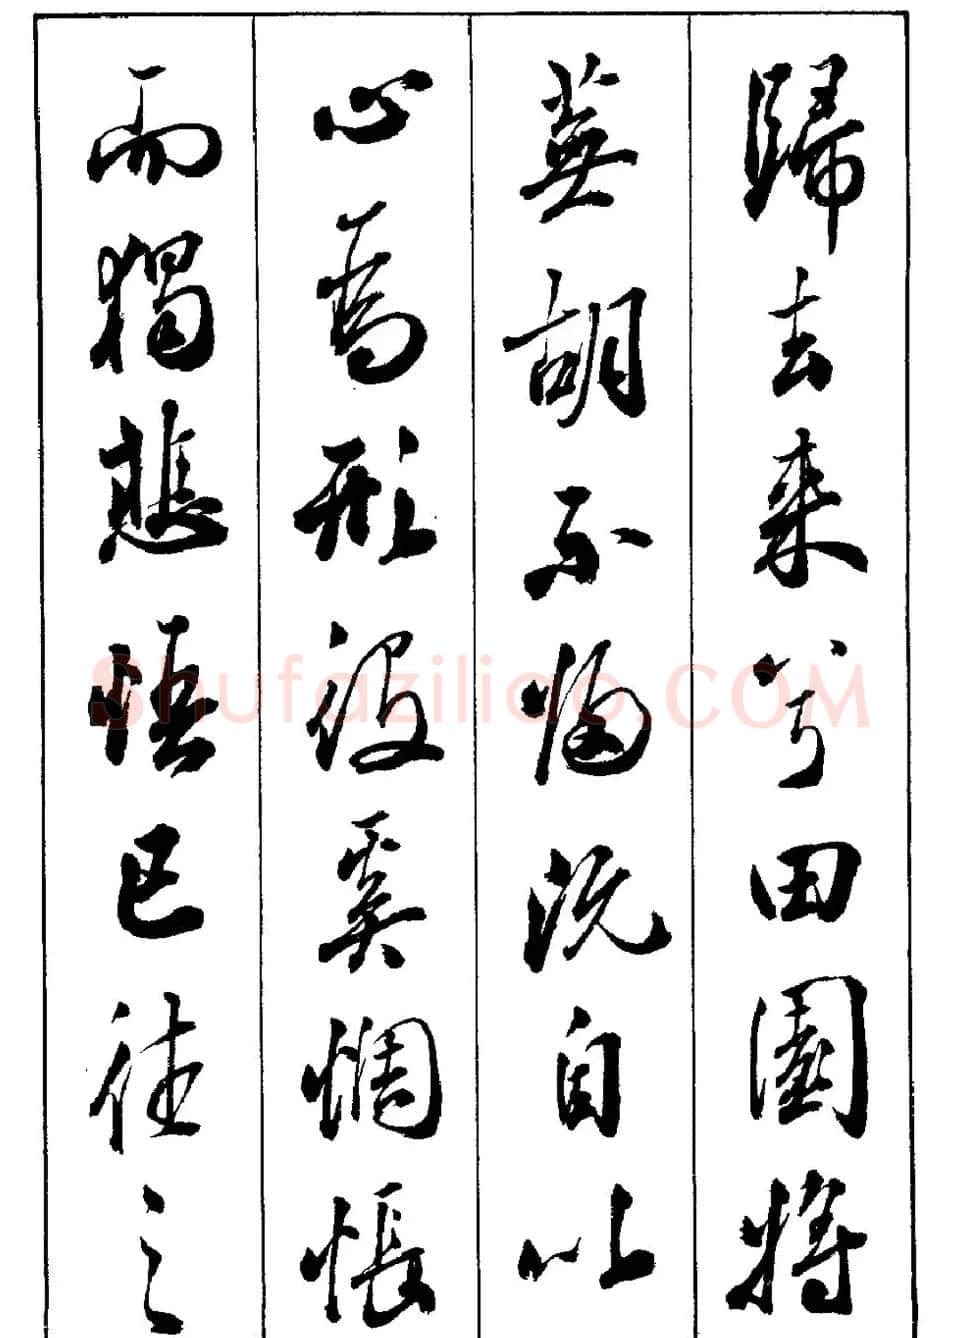 歸去来兮田園將
蕪胡不歸既自以
心為形役奚惆悵
而獨悲悟已往之
Shufaziliao.COM